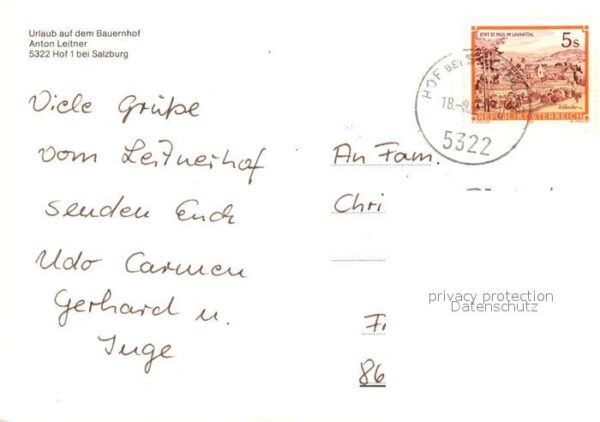 Urlaub auf dem Bauernhof
Anton Leitner
5322 Hof 1 bei Salzburg
STIFT ST. PAUL IM LAVANTTAL
5 S
REPUBLIK ÖSTERREICH
HOF BEI
18.-8.
5322
Viele Grüße
vom Leitnerhof
senden Euch
Udo Carmen
Gerhard u.
Inge
An Fam.
Chri
privacy protection
Datenschutz
86